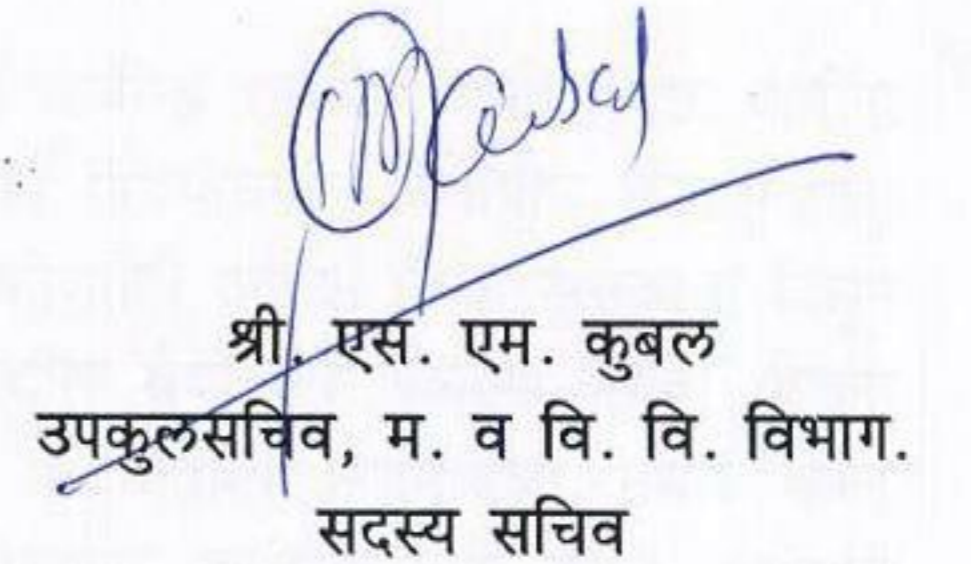 श्री. एस. एम. कुबल
उपकुलसचिव, म. व वि. वि. विभाग.
सदस्य सचिव